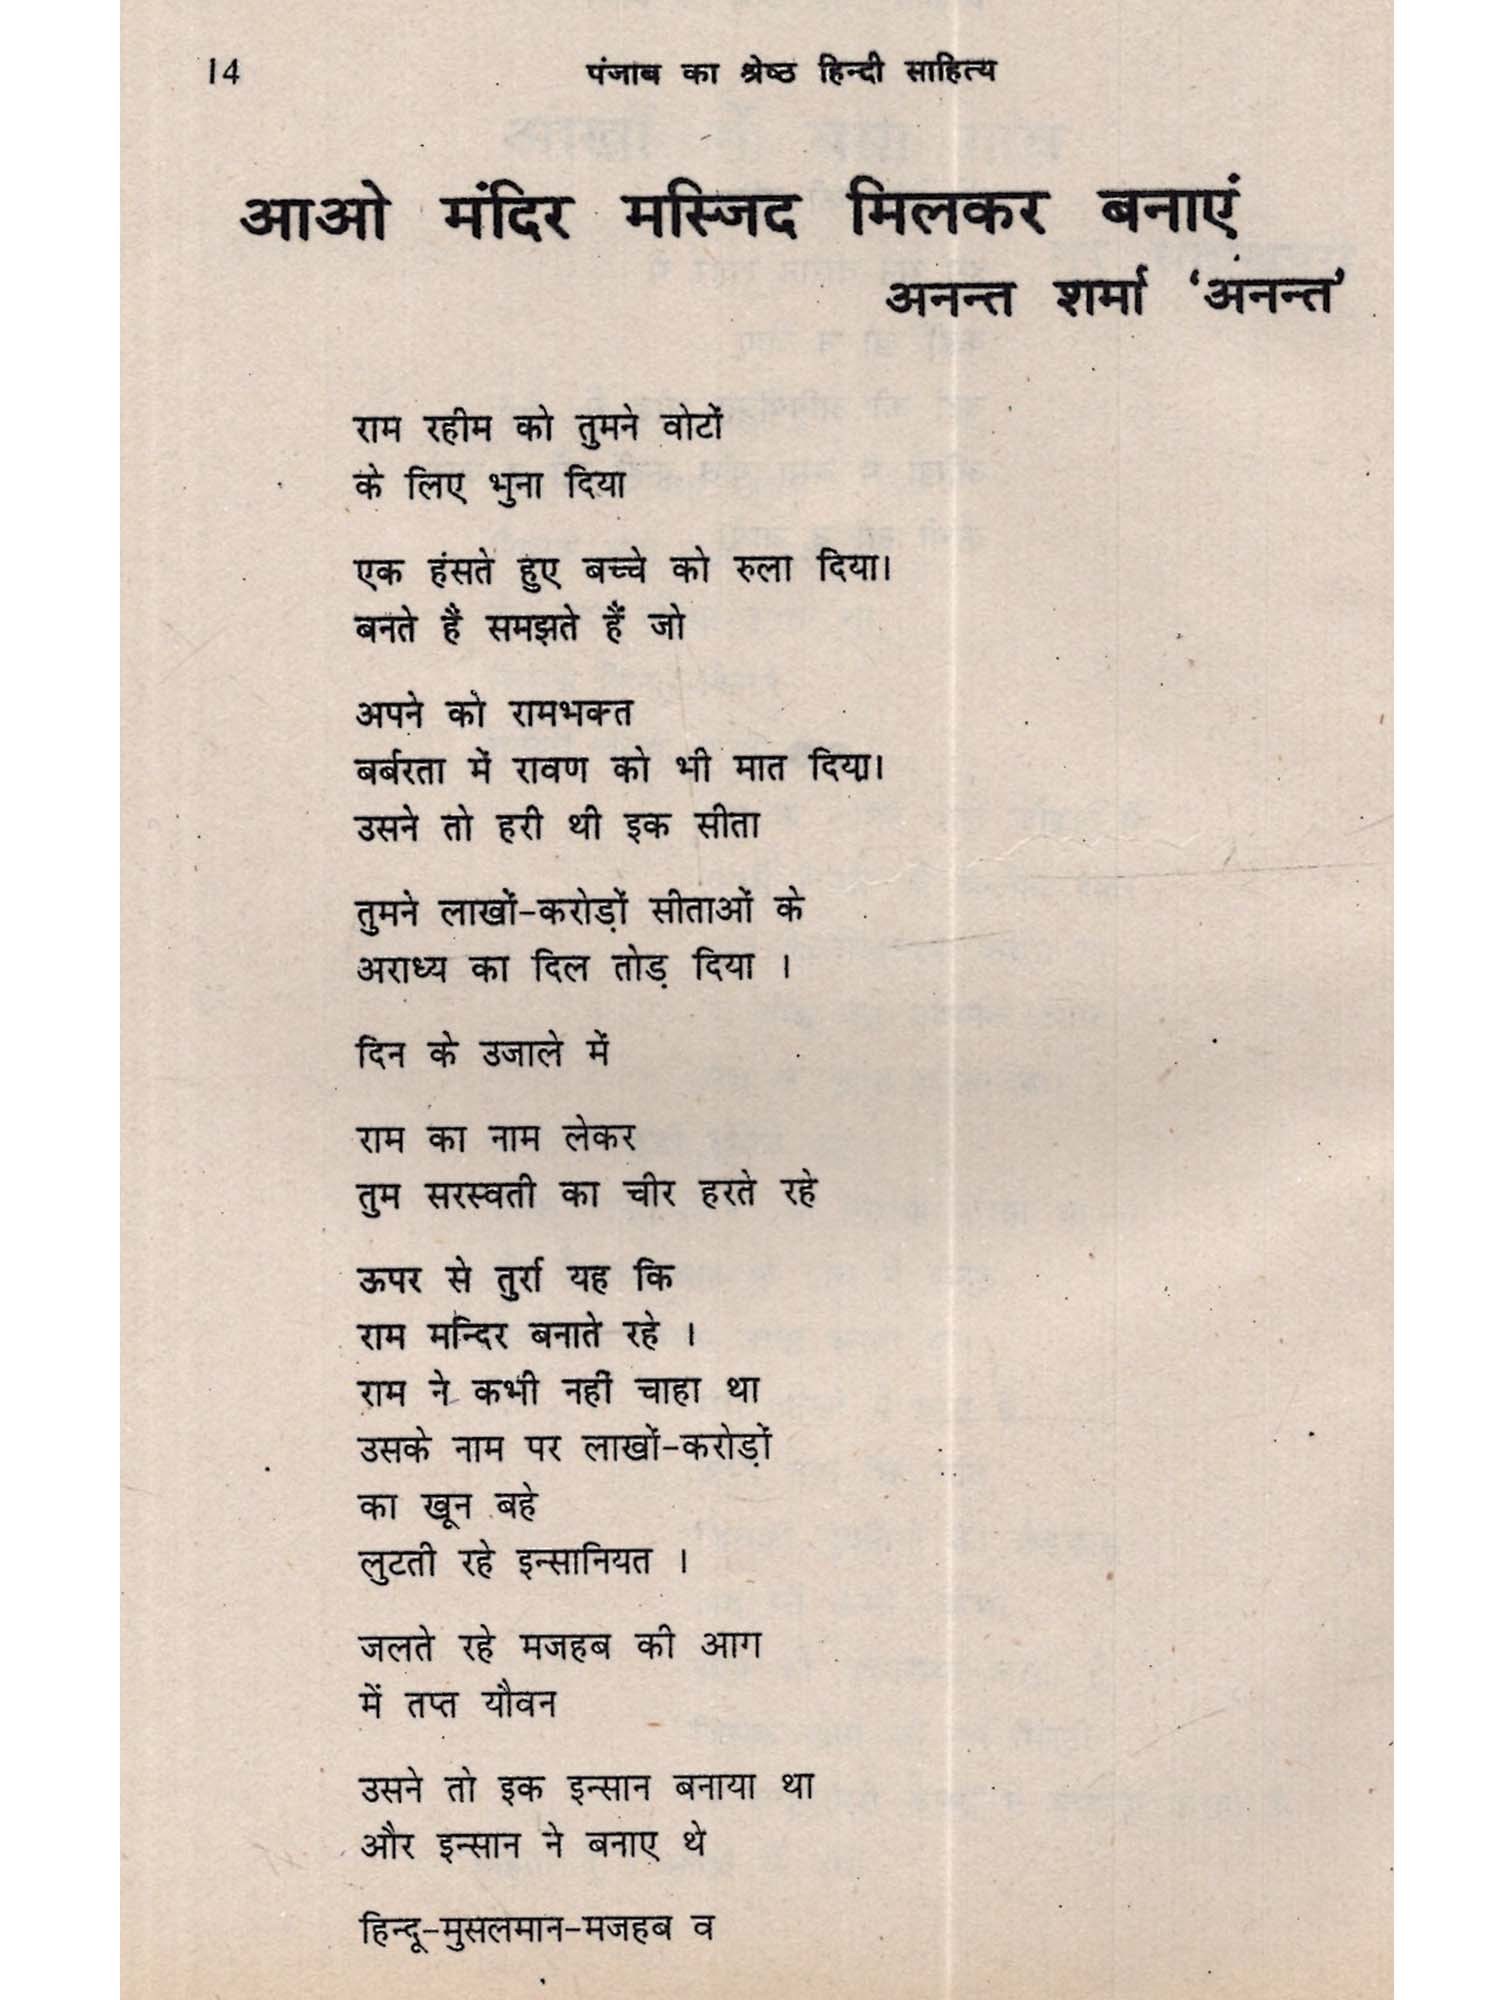 14
पंजाब का श्रेष्ठ हिन्दी साहित्य
आओ मंदिर मस्जिद मिलकर बनाएं
अनन्त शर्मा ‘अनन्त’
राम रहीम को तुमने वोटों
के लिए भुना दिया
एक हंसते हुए बच्चे को रुला दिया।
बनते हैं समझते हैं जो
अपने को रामभक्त
बर्बरता में रावण को भी मात दिया।
उसने तो हरी थी इक सीता
तुमने लाखों-करोड़ों सीताओं के
अराध्य का दिल तोड़ दिया ।
दिन के उजाले में
राम का नाम लेकर
तुम सरस्वती का चीर हरते रहे
ऊपर से तुर्रा यह कि
राम मन्दिर बनाते रहे ।
राम ने कभी नहीं चाहा था
उसके नाम पर लाखों-करोड़ों
का खून बहे
लुटती रहे इन्सानियत ।
जलते रहे मजहब की आग
में तप्त यौवन
उसने तो इक इन्सान बनाया था
और इन्सान ने बनाए थे
हिन्दू-मुसलमान-मजहब व